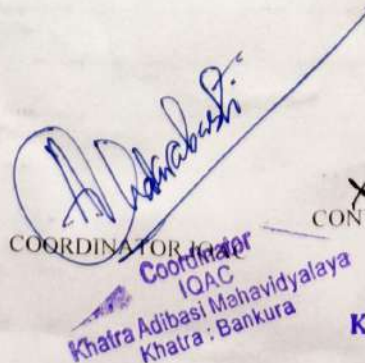 COORDINATOR IQAC
CON
Coordinator
IQAC
Khatra Adibasi Mahavidyalaya
Khatra : Bankura
K